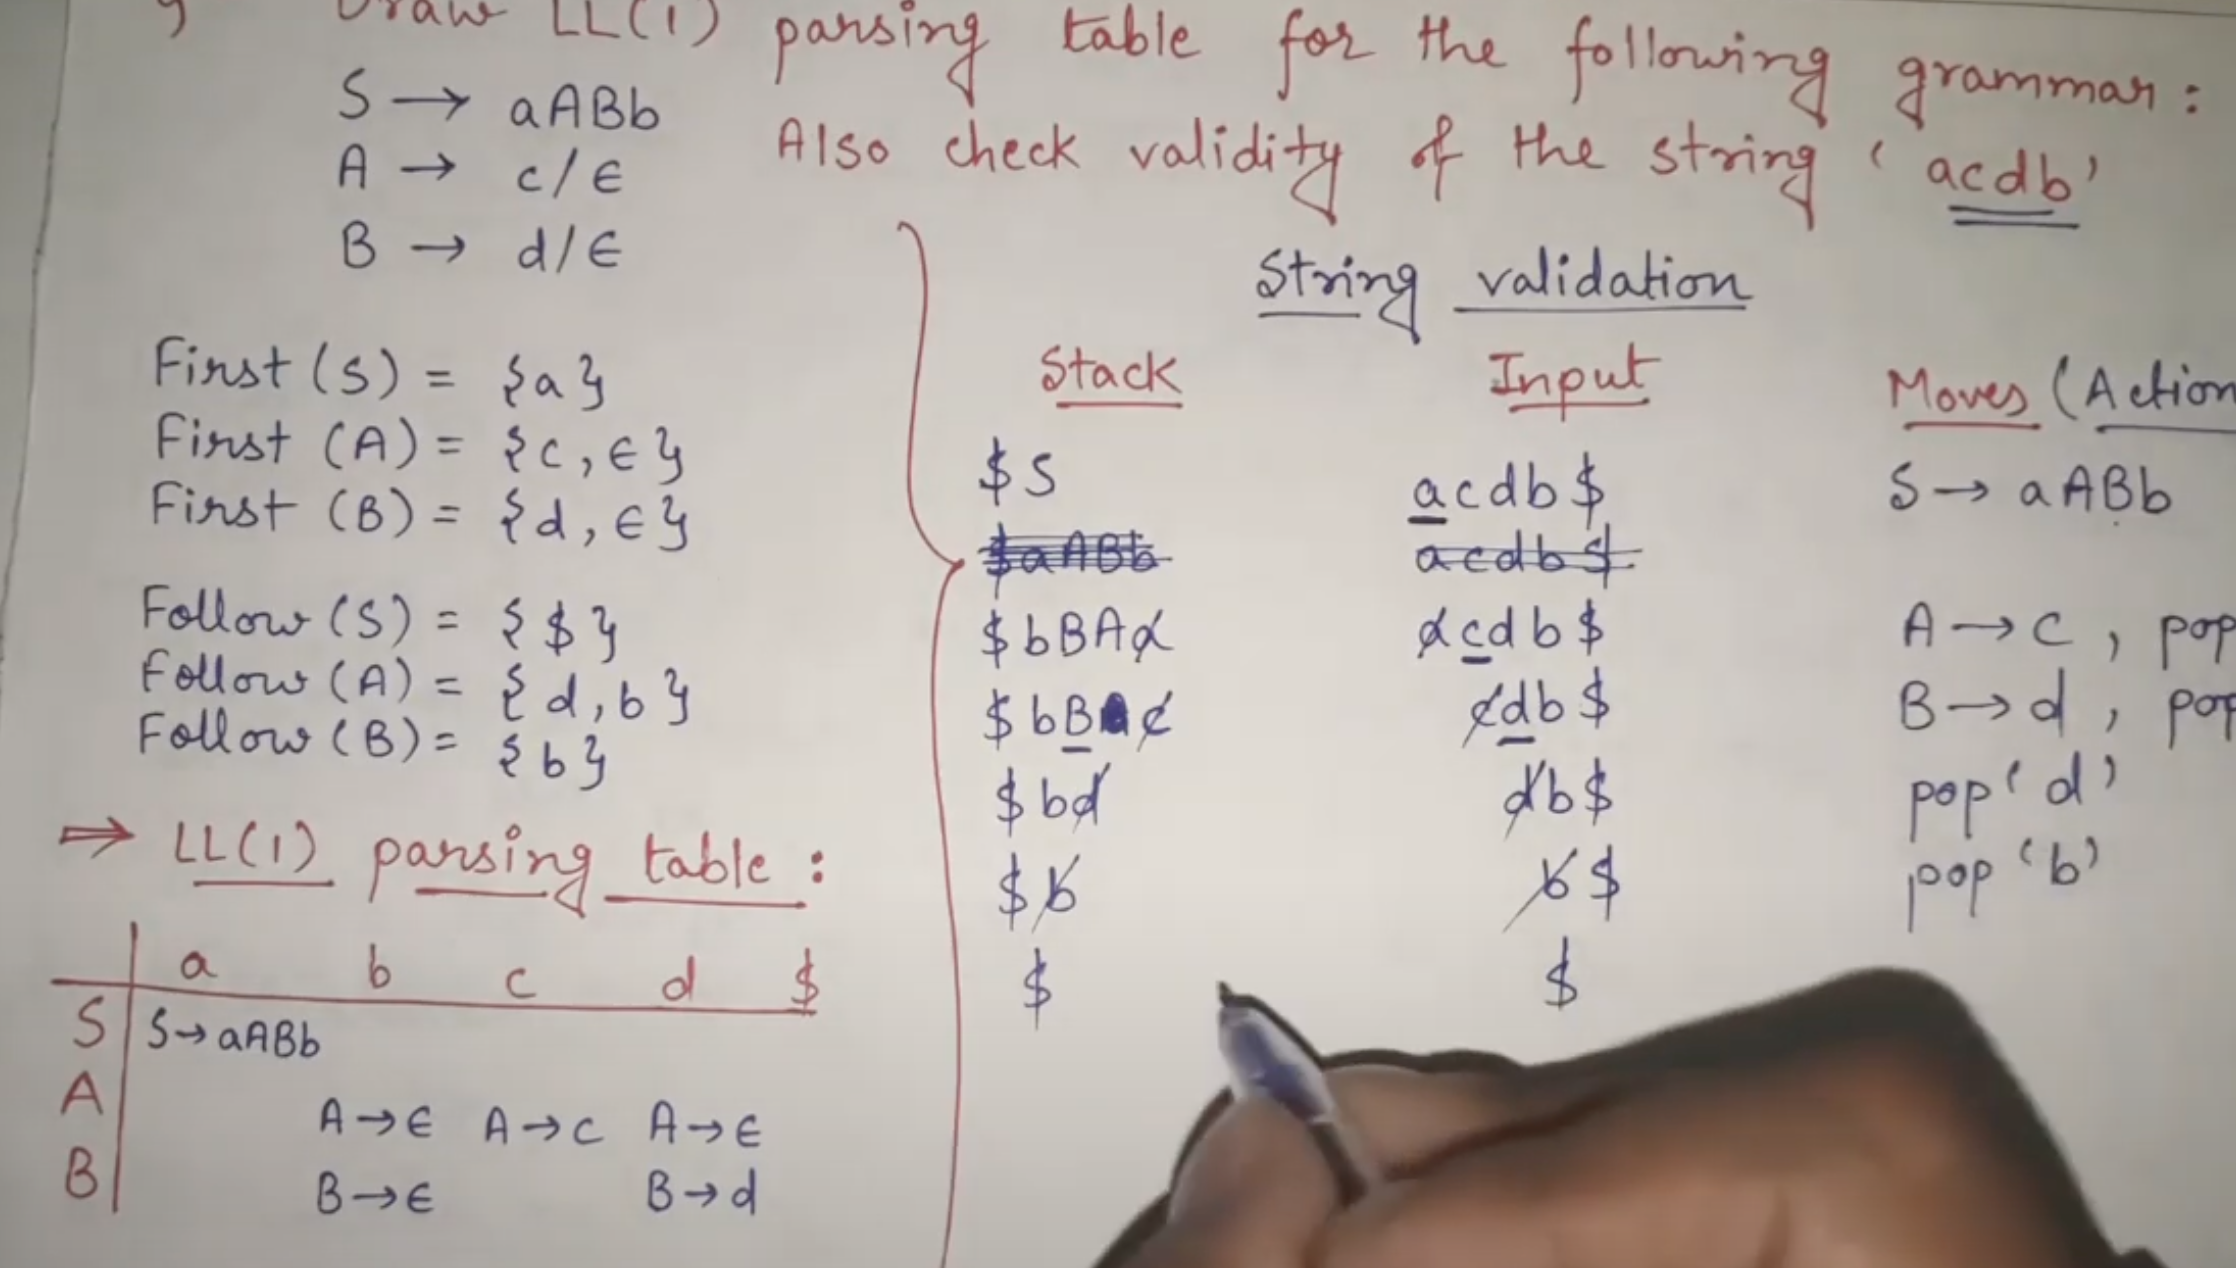 Draw LL(1) parsing table for the following grammar:
S → aABb
Also check validity of the string 'acdb'
A → c/ϵ
B → d/ϵ
First (S) = {a}
First (A) = {c, ϵ}
First (B) = {d, ϵ}
Follow (S) = {$}
Follow (A) = {d, b}
Follow (B) = {b}
⇒ LL(1) parsing table:
a b c d $
S S→aABb
A A→ϵ A→c A→ϵ
B B→ϵ B→d
String validation
Stack Input Moves (Action
$S acdb$ S→aABb
$aABb acdb$
$bBAa acdb$ A→c, pop
$bBc cdb$ B→d, pop
$bd db$ pop 'd'
$b b$ pop 'b'
$ $